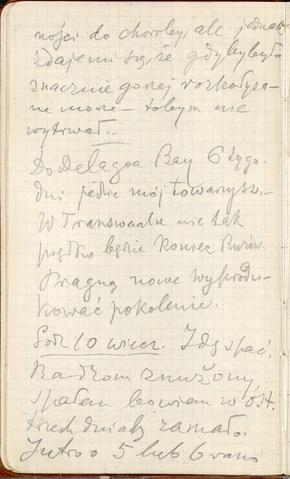 ności do choroby, ale jednak
zdaje mi się, że gdyby było
znacznie gorzej rozkołysa-
ne morze – tobym nie
wytrwał. –
Do Delagoa Bay 6 tygo-
dni jedzie mój towarzysz. –
W Transwaalu nie tak
prędko będzie koniec Burów.
Pragną nowe wyprodu-
kować pokolenie.
Godz. 10 wiecz. Idę spać.
Bardzom znużony,
spałem bowiem w ost.
trzech dniach zamało.
Jutro o 5 lub 6 rano